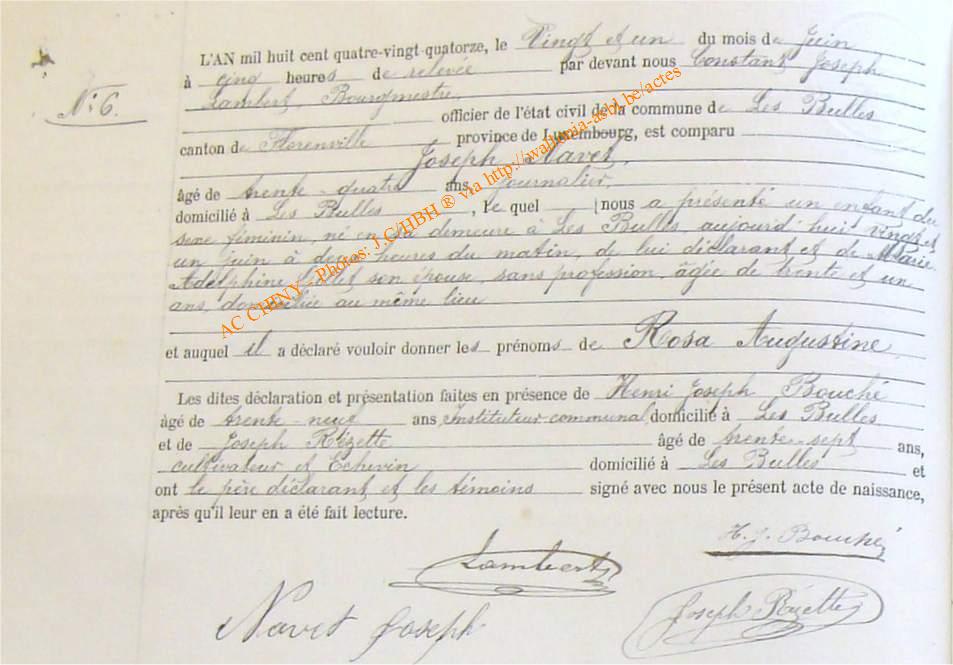 L'AN mil huit cent quatre-vingt-quatorze, le Vingt et un du mois de Juin
à cinq heures de relevée par devant nous Constant Joseph
Lambert, Bourgmestre,
N°6.
officier de l'état civil de la commune de Les Bulles
canton de Florenville province de Luxembourg, est comparu
Joseph Navet,
âgé de trente-quatre ans, journalier,
domicilié à Les Bulles, le quel nous a présenté un enfant du
sexe féminin, né en sa demeure à Les Bulles, aujourd'hui vingt et
un juin à heures du matin, de lui déclarant et de Marie
Adelphine son épouse, sans profession, âgée de trente et un
ans, domiciliée au même lieu
et auquel il a déclaré vouloir donner les prénoms de Rosa Augustine,
Les dites déclaration et présentation faites en présence de Henri Joseph Bouché
âgé de trente-neuf ans, Instituteur communal, domicilié à Les Bulles
et de Joseph Rézette âgé de trente-sept ans,
cultivateur et Echevin domicilié à Les Bulles et
ont le père déclarant et les témoins signé avec nous le présent acte de naissance,
après qu'il leur en a été fait lecture.
H. J. Bouché
Lambert
Navet Joseph
Joseph Rézette
AC CHINY - Photos: J.C/HBH ® via http://wallonia-asbl.be/actes